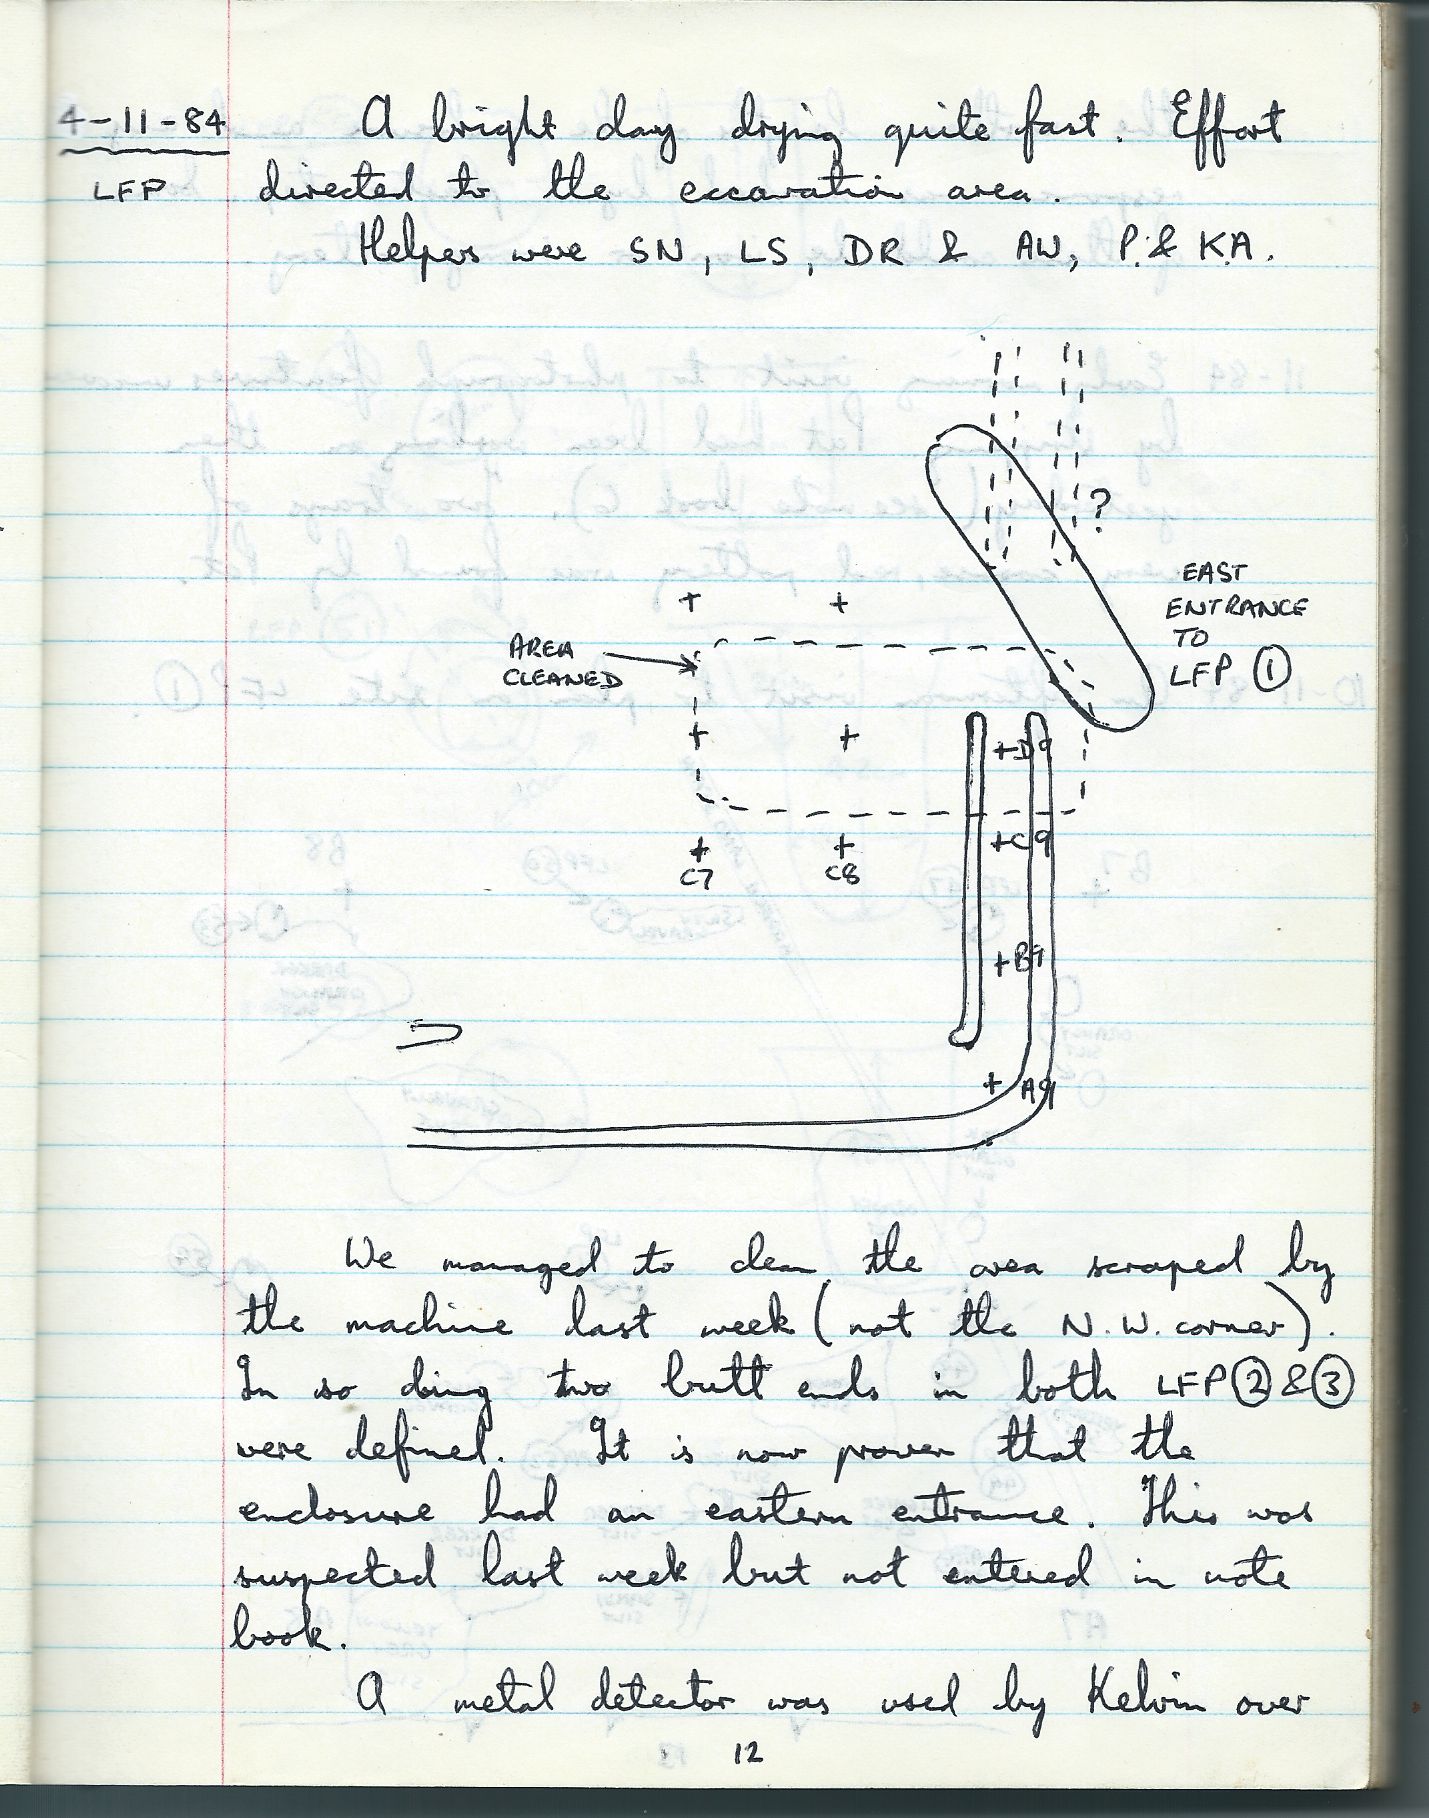 4-11-84
LFP
A bright day drying quite fast. Effort
directed to the excavation area.
Helpers were SN, LS, DR & AW, P. & K.A.
?
EAST
ENTRANCE
TO
LFP ①
AREA
CLEANED
+ +
+ + +D9
+ + +C9
C7 C8
+B9
+ A9
We managed to clean the area scraped by
the machine last week (not the N.W. corner).
In so doing two butt ends in both LFP ② & ③
were defined. It is now proven that the
enclosure had an eastern entrance. This was
suspected last week but not entered in note
book.
A metal detector was used by Kelvin over
12